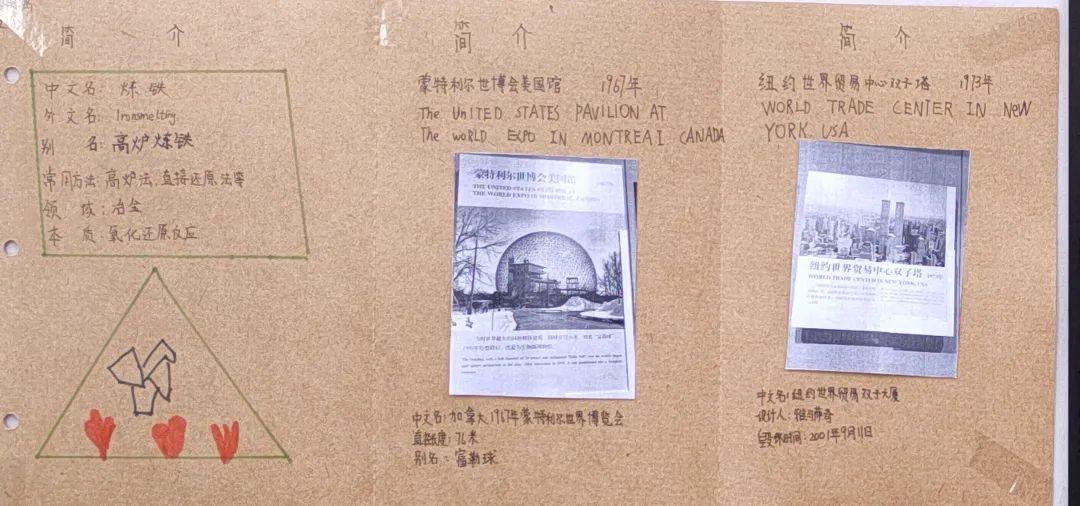 简 介
中文名：炼铁
外文名：Ironsmelting
别 名：高炉炼铁
常用方法：高炉法，直接还原法等
领 域：冶金
本 质：氧化还原反应
简 介
蒙特利尔世博会美国馆 1967年
The UNITED STATES PAVILION AT
The woRLD EXPO IN MONTREAI CANADA
蒙特利尔世博会美国馆
THE UNITED STATES PAVILION AT
THE WORLD EXPO IN MONTREAL, CANADA
中文名：加拿大1967年蒙特利尔世界博览会
直径长度：76米
别名：富勒球
简 介
纽约世界贸易中心双子塔 1973年
WORLD TRADE CENTER IN NEW
YORK. USA
纽约世界贸易中心双子塔 1973年
WORLD TRADE CENTER IN NEW YORK, USA
中文名：纽约世界贸易双子大厦
设计人：雅马萨奇
时间：2001年9月11日